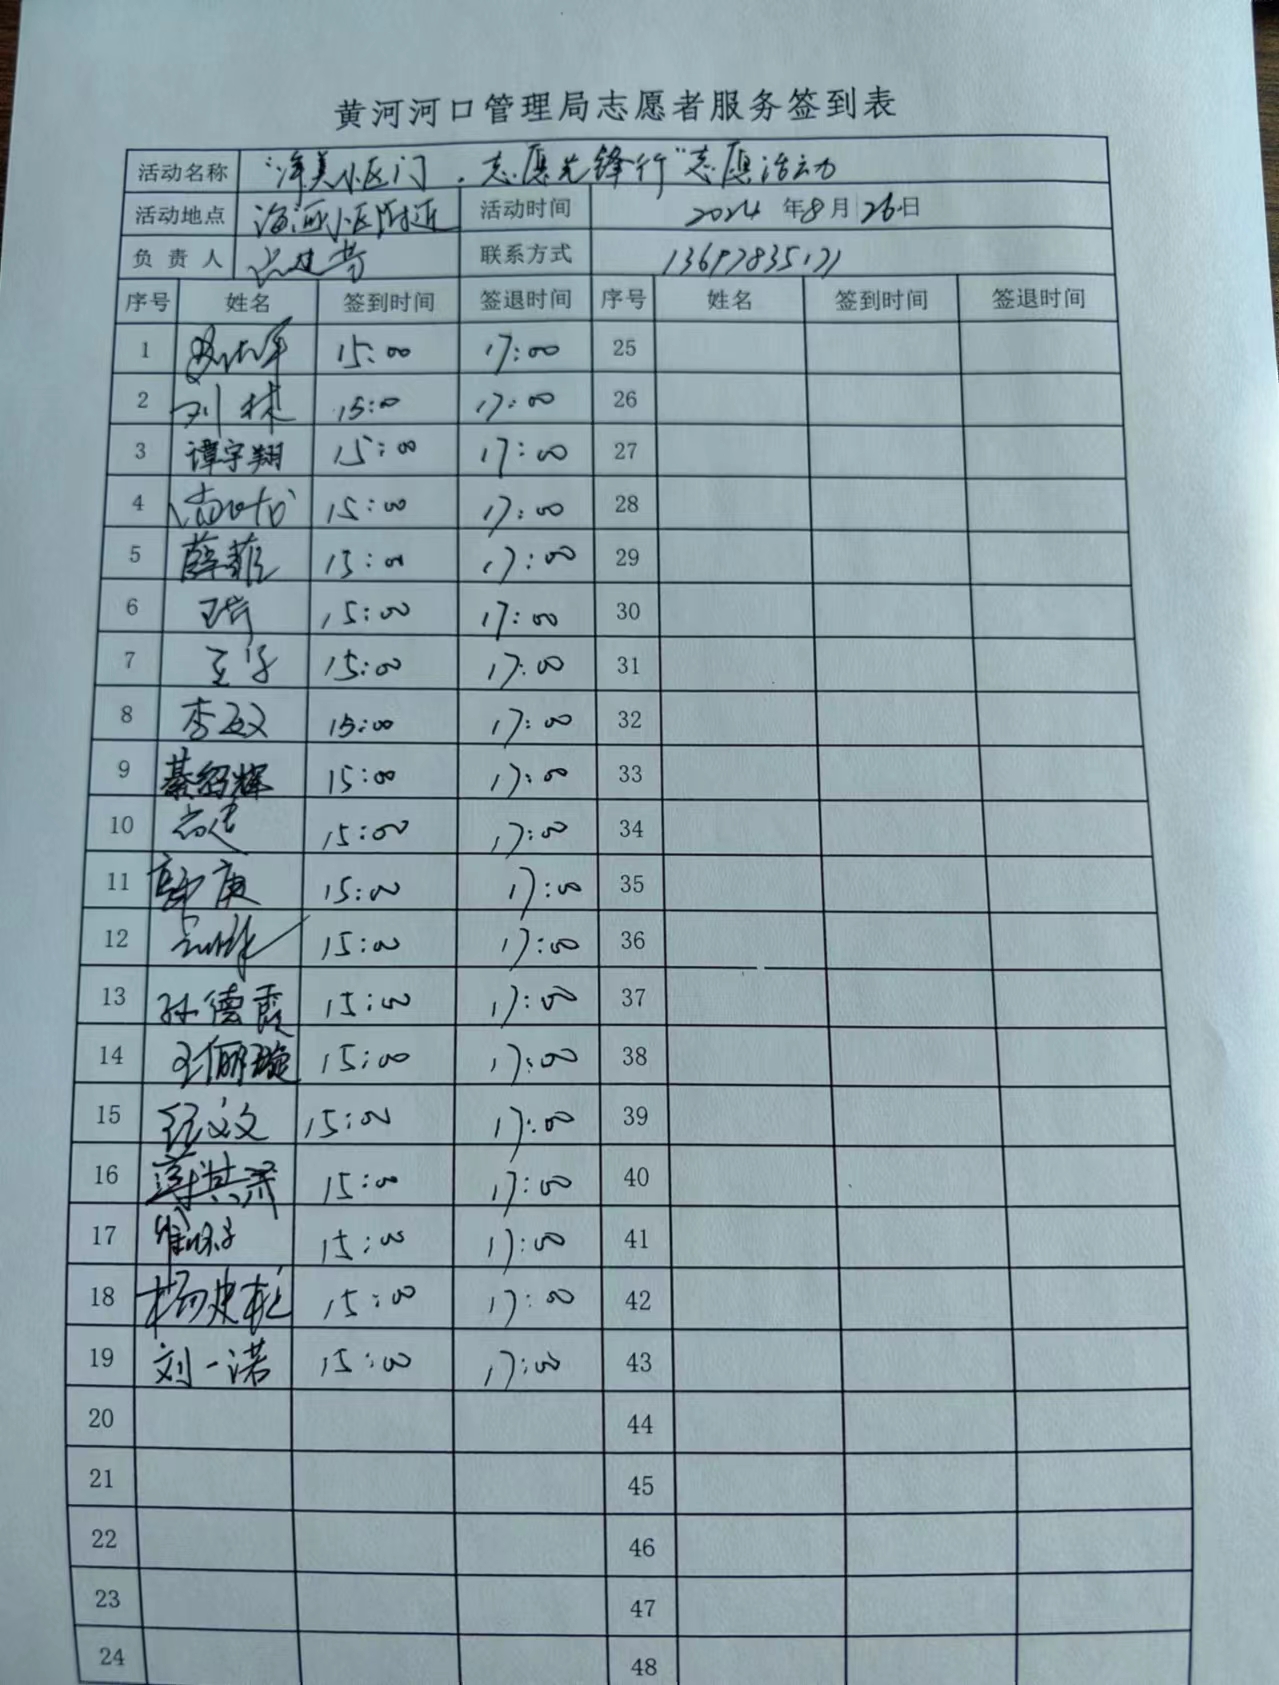 黄河河口管理局志愿者服务签到表
活动名称 小区门，志愿先锋行"志愿活动
活动地点 海河小区附近 活动时间 2024 年 8 月 26 日
负责人 联系方式
序号 姓名 签到时间 签退时间 序号 姓名 签到时间 签退时间
1 15:00 17:00 25
2 刘林 15:00 17:00 26
3 谭宇翔 15:00 17:00 27
4 15:00 17:00 28
5 薛菲 15:00 17:00 29
6 15:00 17:00 30
7 15:00 17:00 31
8 李 15:00 17:00 32
9 綦绍辉 15:00 17:00 33
10 15:00 17:00 34
11 15:00 17:00 35
12 15:00 17:00 36
13 孙德霞 15:00 17:00 37
14 王俪璇 15:00 17:00 38
15 15:00 17:00 39
16 15:00 17:00 40
17 15:00 17:00 41
18 杨 15:00 17:00 42
19 刘一诺 15:00 17:00 43
20 44
21 45
22 46
23 47
24 48